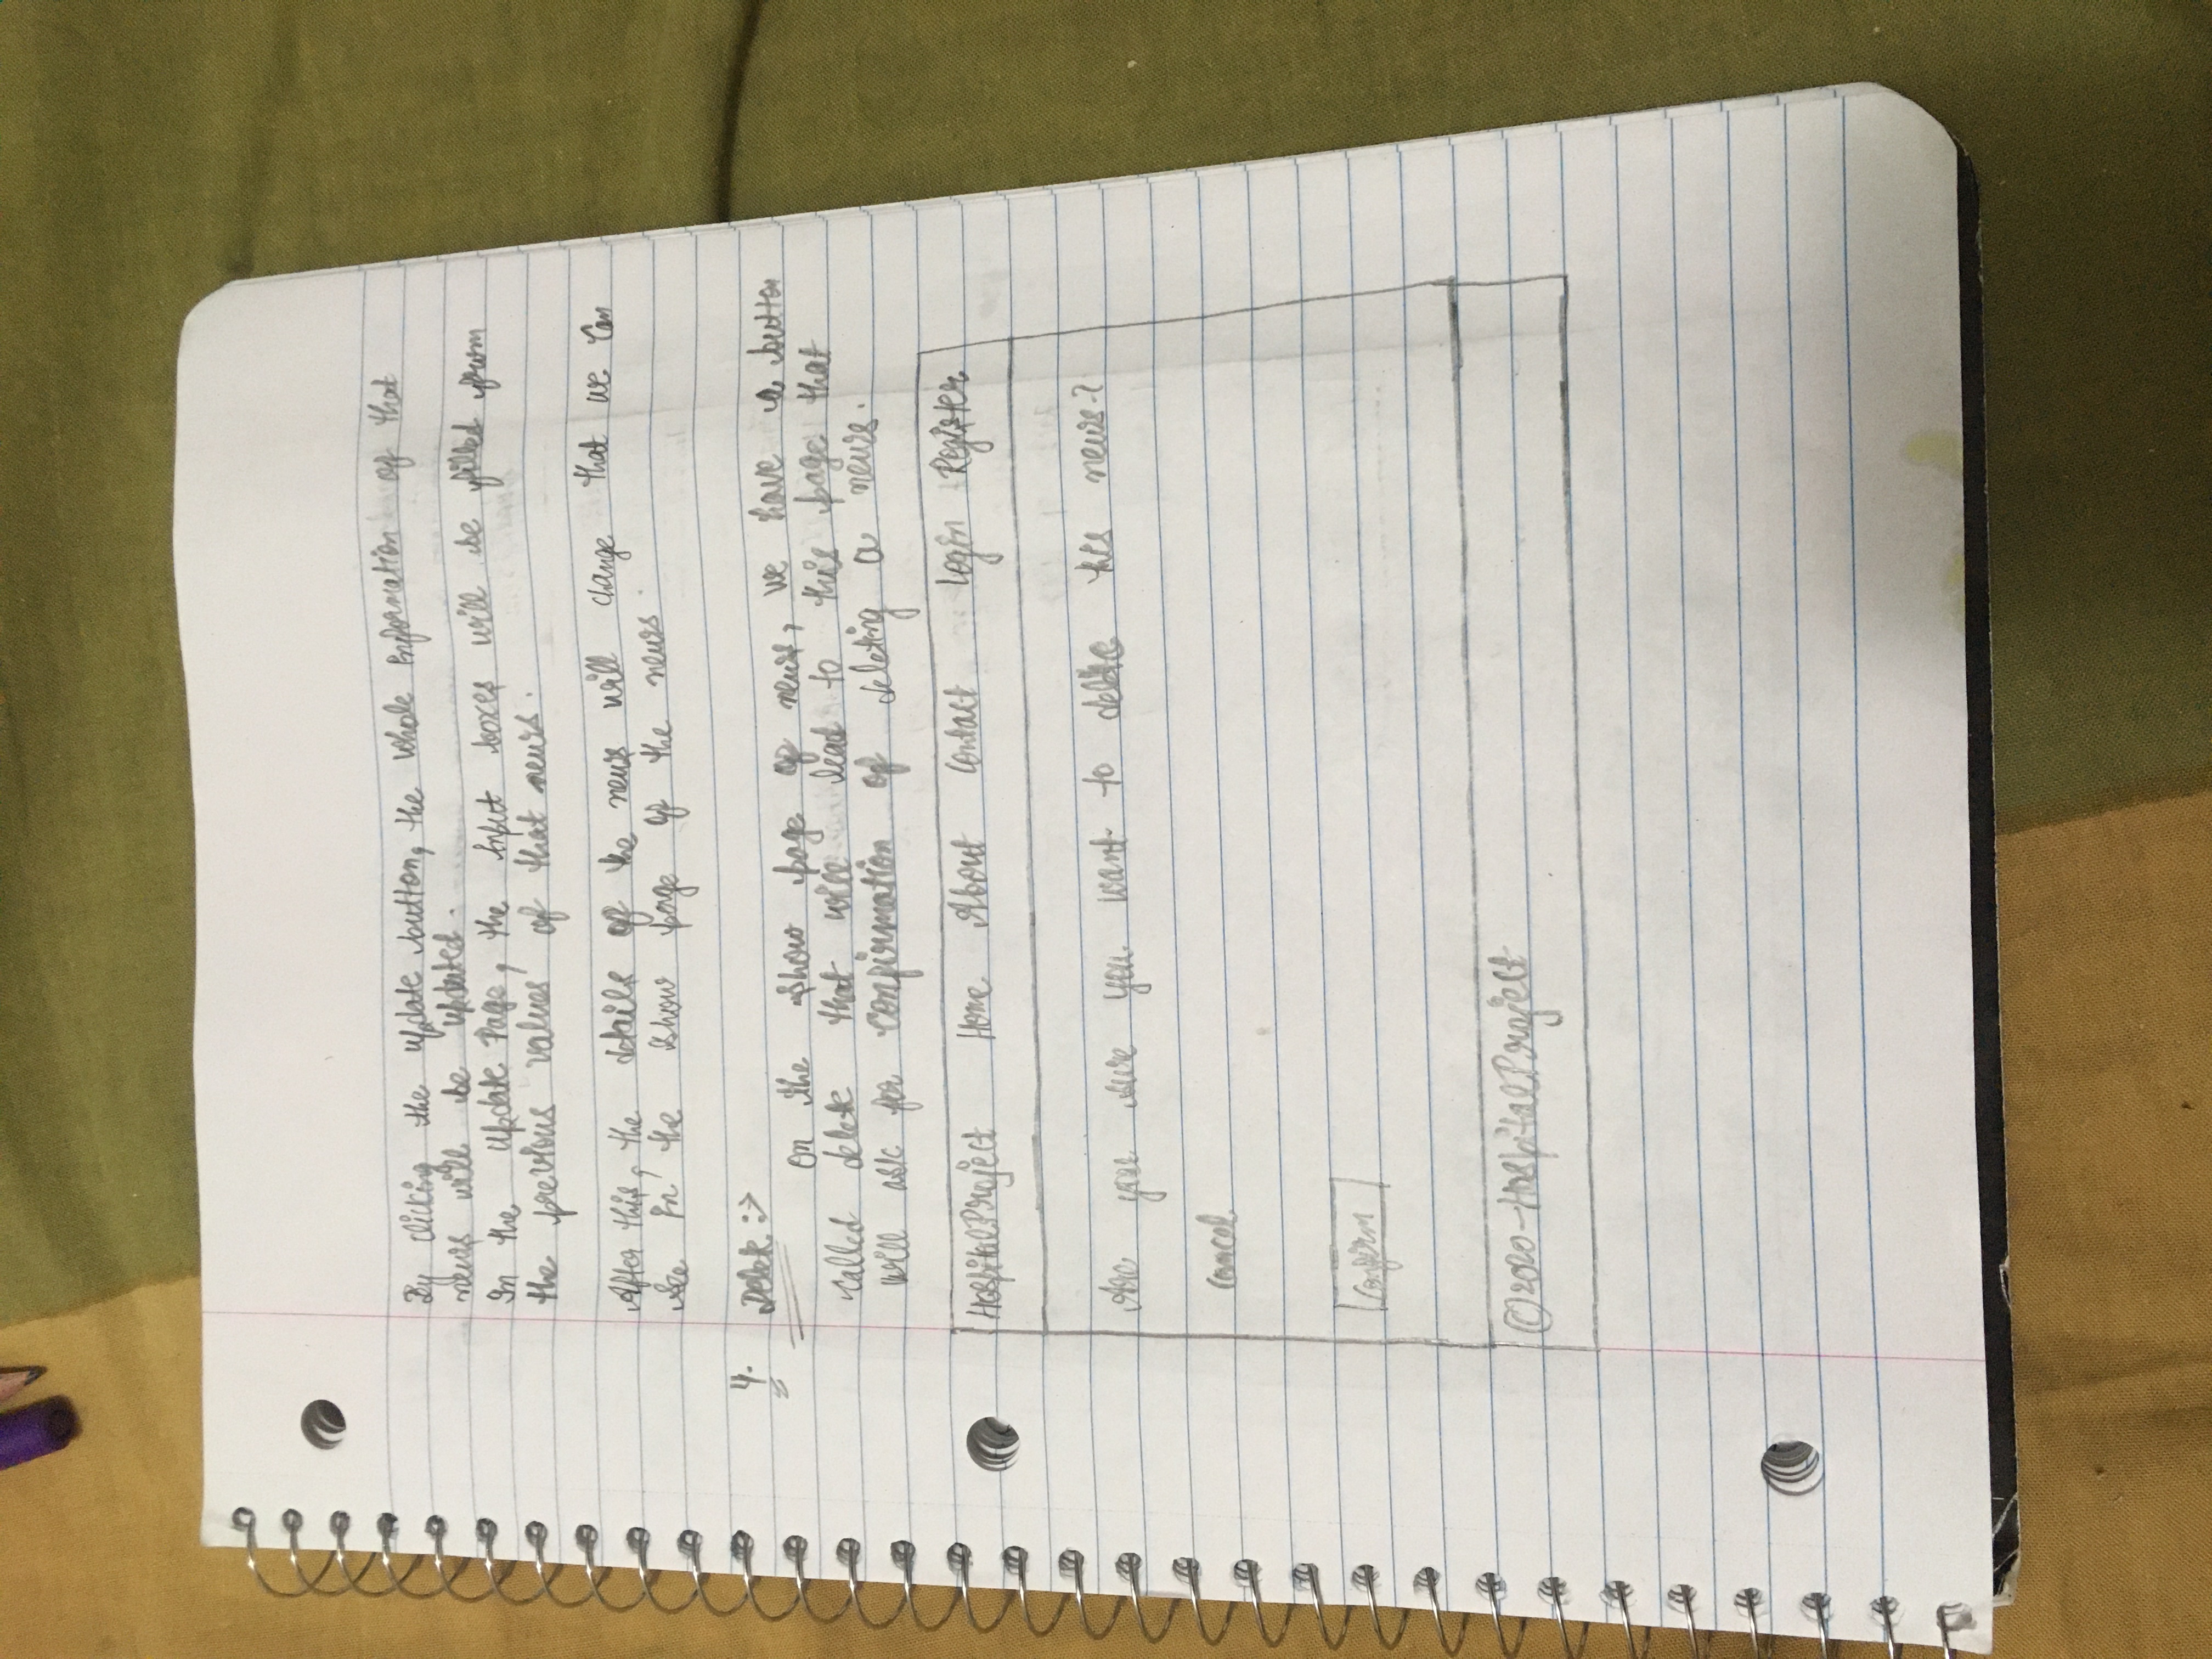 By clicking the update button, the whole information of that
news will be updated.
In the Update Page, the input boxes will be filled from
the previous values of that news.
After this, the details of the news will change that we can
see in the show page of the news.
4. Delete :->
On the show page of news, we have a button
called delete that will lead to this page that
will ask for confirmation of deleting a news.
HospitalProject Home About Contact Login Register
Are you sure you want to delete this news?
Cancel
Confirm
©2020-HospitalProject